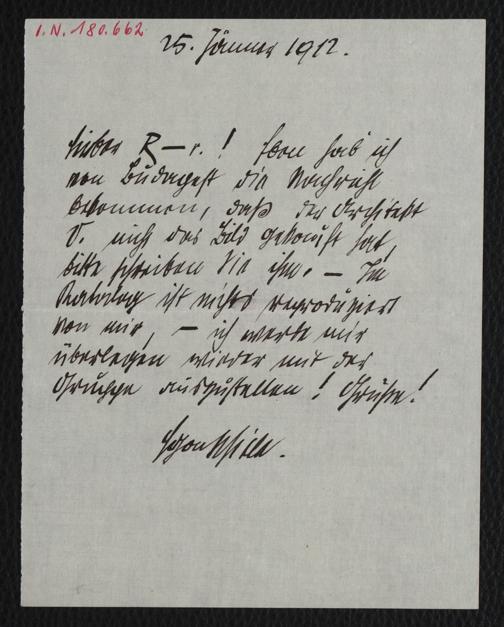 I.N. 180.662
25. Jänner 1912.
Lieber R—r.! Eben hab' ich
von Budapest die Nachricht
bekommen, daß der Architekt
V. nicht das Bild gekauft hat,
bitte schreiben Sie ihm. — Im
Katalog ist nichts reproduziert
von mir, — ich werde mir
überlegen wieder mit der
Gruppe auszustellen! Grüße!
Egon Schiele.